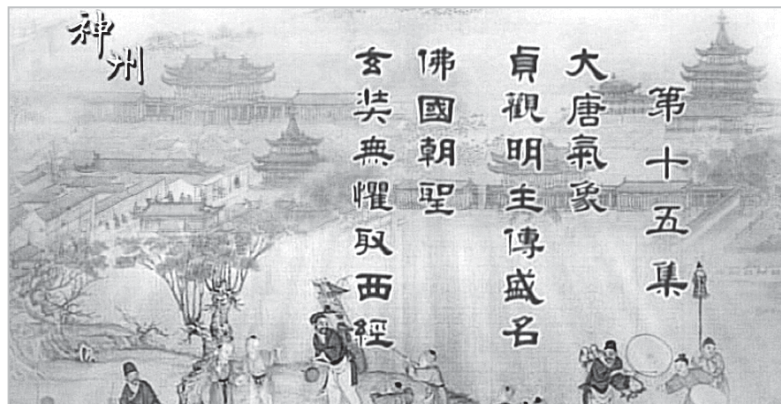 神州
第十五集
大唐氣象
貞觀明主傳盛名
佛國朝聖
玄奘無懼取西經